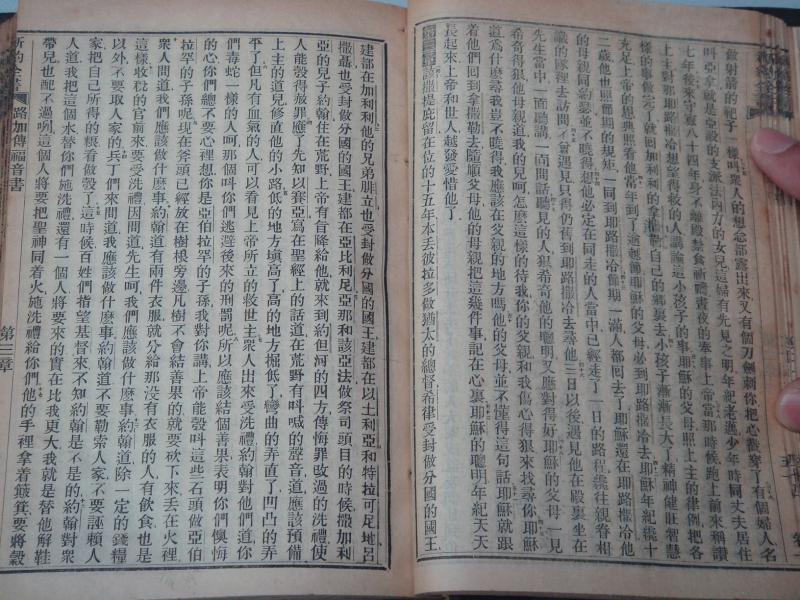 做射箭的靶子一樣叫衆人的想念都露出來又有個刀劍刺你把心戳穿了○有個婦人名
叫亞拿就是亞設的支派法內力的女兒這婦有先見之明年紀老邁少年時同丈夫居住
七年後來守寡八十四年身不離殿禁食祈禱晝夜的奉事上帝當那時候跑上前來稱讚
上主對那耶路撒冷想望得救的人講論這小孩子的事耶穌的父母照上主的律例把各
樣的事做完了就回加利利的拿撒勒自己的鄉裏去小孩子漸漸長大了精神健旺智慧
充足上帝的恩典照看他當年到了逾越節耶穌的父母必到耶路撒冷去耶穌年紀纔十
二歲他也照節期的規矩一同到耶路撒冷節期一滿人都回去了耶穌還在耶路撒冷他
的親同約瑟並不曉得想他必定在同走的人當中已經走了一日的路程纔往親眷相
識的隊裡去訪問不曾遇見只得仍舊到耶路撒冷去尋他三日以後遇見他在殿裏坐在
先生當中一面聽講一面問話聽見的人狠希奇他的聰明又應對得好耶穌的父母一見
希奇得狠他母親道我的兒呵怎麼這樣的待我你的父親和我傷心得狠來找尋你耶穌
道爲什麼尋我豈不曉得我應該在父親的地方嗎他的父母並不懂得這句話耶穌就跟
着他們回到拿撒勒去隨順父母他的母親把這幾件事記在心裏耶穌的聰明年紀天天
長起來上帝和世人越發愛惜他了
該撒提庇留在位的十五年本丢彼拉多做猶太的總督希律受封做分國的國王
建都在加利利他的兄弟腓立也受封做分國的國王建都在以土利亞和特拉可尼地呂
撒聶也受封做分國的國王建都在亞比利尼亞那和該亞法做祭司頭目的時候撒加利
亞的兒子約翰住在荒野上帝有旨降給他就來到約但河的四方傳悔罪改過的洗禮使
人能彀得放罪應了先知以賽亞寫在聖經上的話道在荒野有呌喊的聲音道應該預備
上主的道兒修直他的小路低的地方塡高了高的地方掘低了彎曲的弄直了凹凸的弄
平了但凡有血氣的人可以看見上帝所立的救世主衆人出來受洗禮約翰對他們道你
們毒蛇一樣的人呵那個叫你們逃避後來的刑罰呢所以應該結個善果表明你們懊悔
的心你們總不要心裡想你是亞伯拉罕的子孫我對你講上帝能彀叫這些石頭做亞伯
拉罕的子孫呢現在斧頭已經放在樹根旁邊凡樹不會結善果的就要砍下來丢在火裡
衆人問道我們應該做什麼事約翰道有兩件衣服就分給那沒有衣服的人有飲食也是
這樣收稅的官府來要受洗禮因問道先生呵我們應該做什麼事約翰道除一定的錢糧
以外不要取人家的兵丁們來問道我應該做什麼事約翰道不要勒索人家不要誣賴人
家把自己所得的糧看做彀了這時候百姓們指望基督來不知約翰是不是的約翰對衆
人道我把這個水替你們施洗禮還有一個人將要來的實在比我更大我就是替他解鞋
帶兒也配不過咧這個人將要把聖神同着火施洗禮給你們他的手裡拿着簸箕要將穀
新約全書
路加傳福音書
第三章